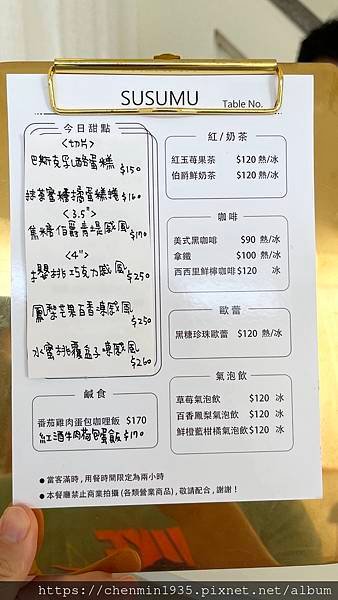 SUSUMU
Table No.
今日甜點
<切片>
巴斯克乳酪蛋糕 $150
抹茶蜜糖橘蛋糕捲 $160
<3.5">
焦糖伯爵青堤戚風 $170
<4">
櫻桃巧克力戚風 $250
鳳梨芒果百香凍戚風 $250
水蜜桃覆盆子凍戚風 $260
鹹食
番茄雞肉蛋包咖哩飯 $170
紅酒牛肉蛋飯 $170
紅/奶茶
紅玉莓果茶 $120 熱/冰
伯爵鮮奶茶 $120 熱/冰
咖啡
美式黑咖啡 $90 熱/冰
拿鐵 $100 熱/冰
西西里鮮檸咖啡 $120 冰
歐蕾
黑糖珍珠歐蕾 $120 熱/冰
氣泡飲
草莓氣泡飲 $120 冰
百香鳳梨氣泡飲 $120 冰
鮮橙藍柑橘氣泡飲 $120 冰
●當客滿時,用餐時間限定為兩小時
●本餐廳禁止商業拍攝(各類營業商品),敬請配合,謝謝!
https://chenmin1935.pixnet.net/album